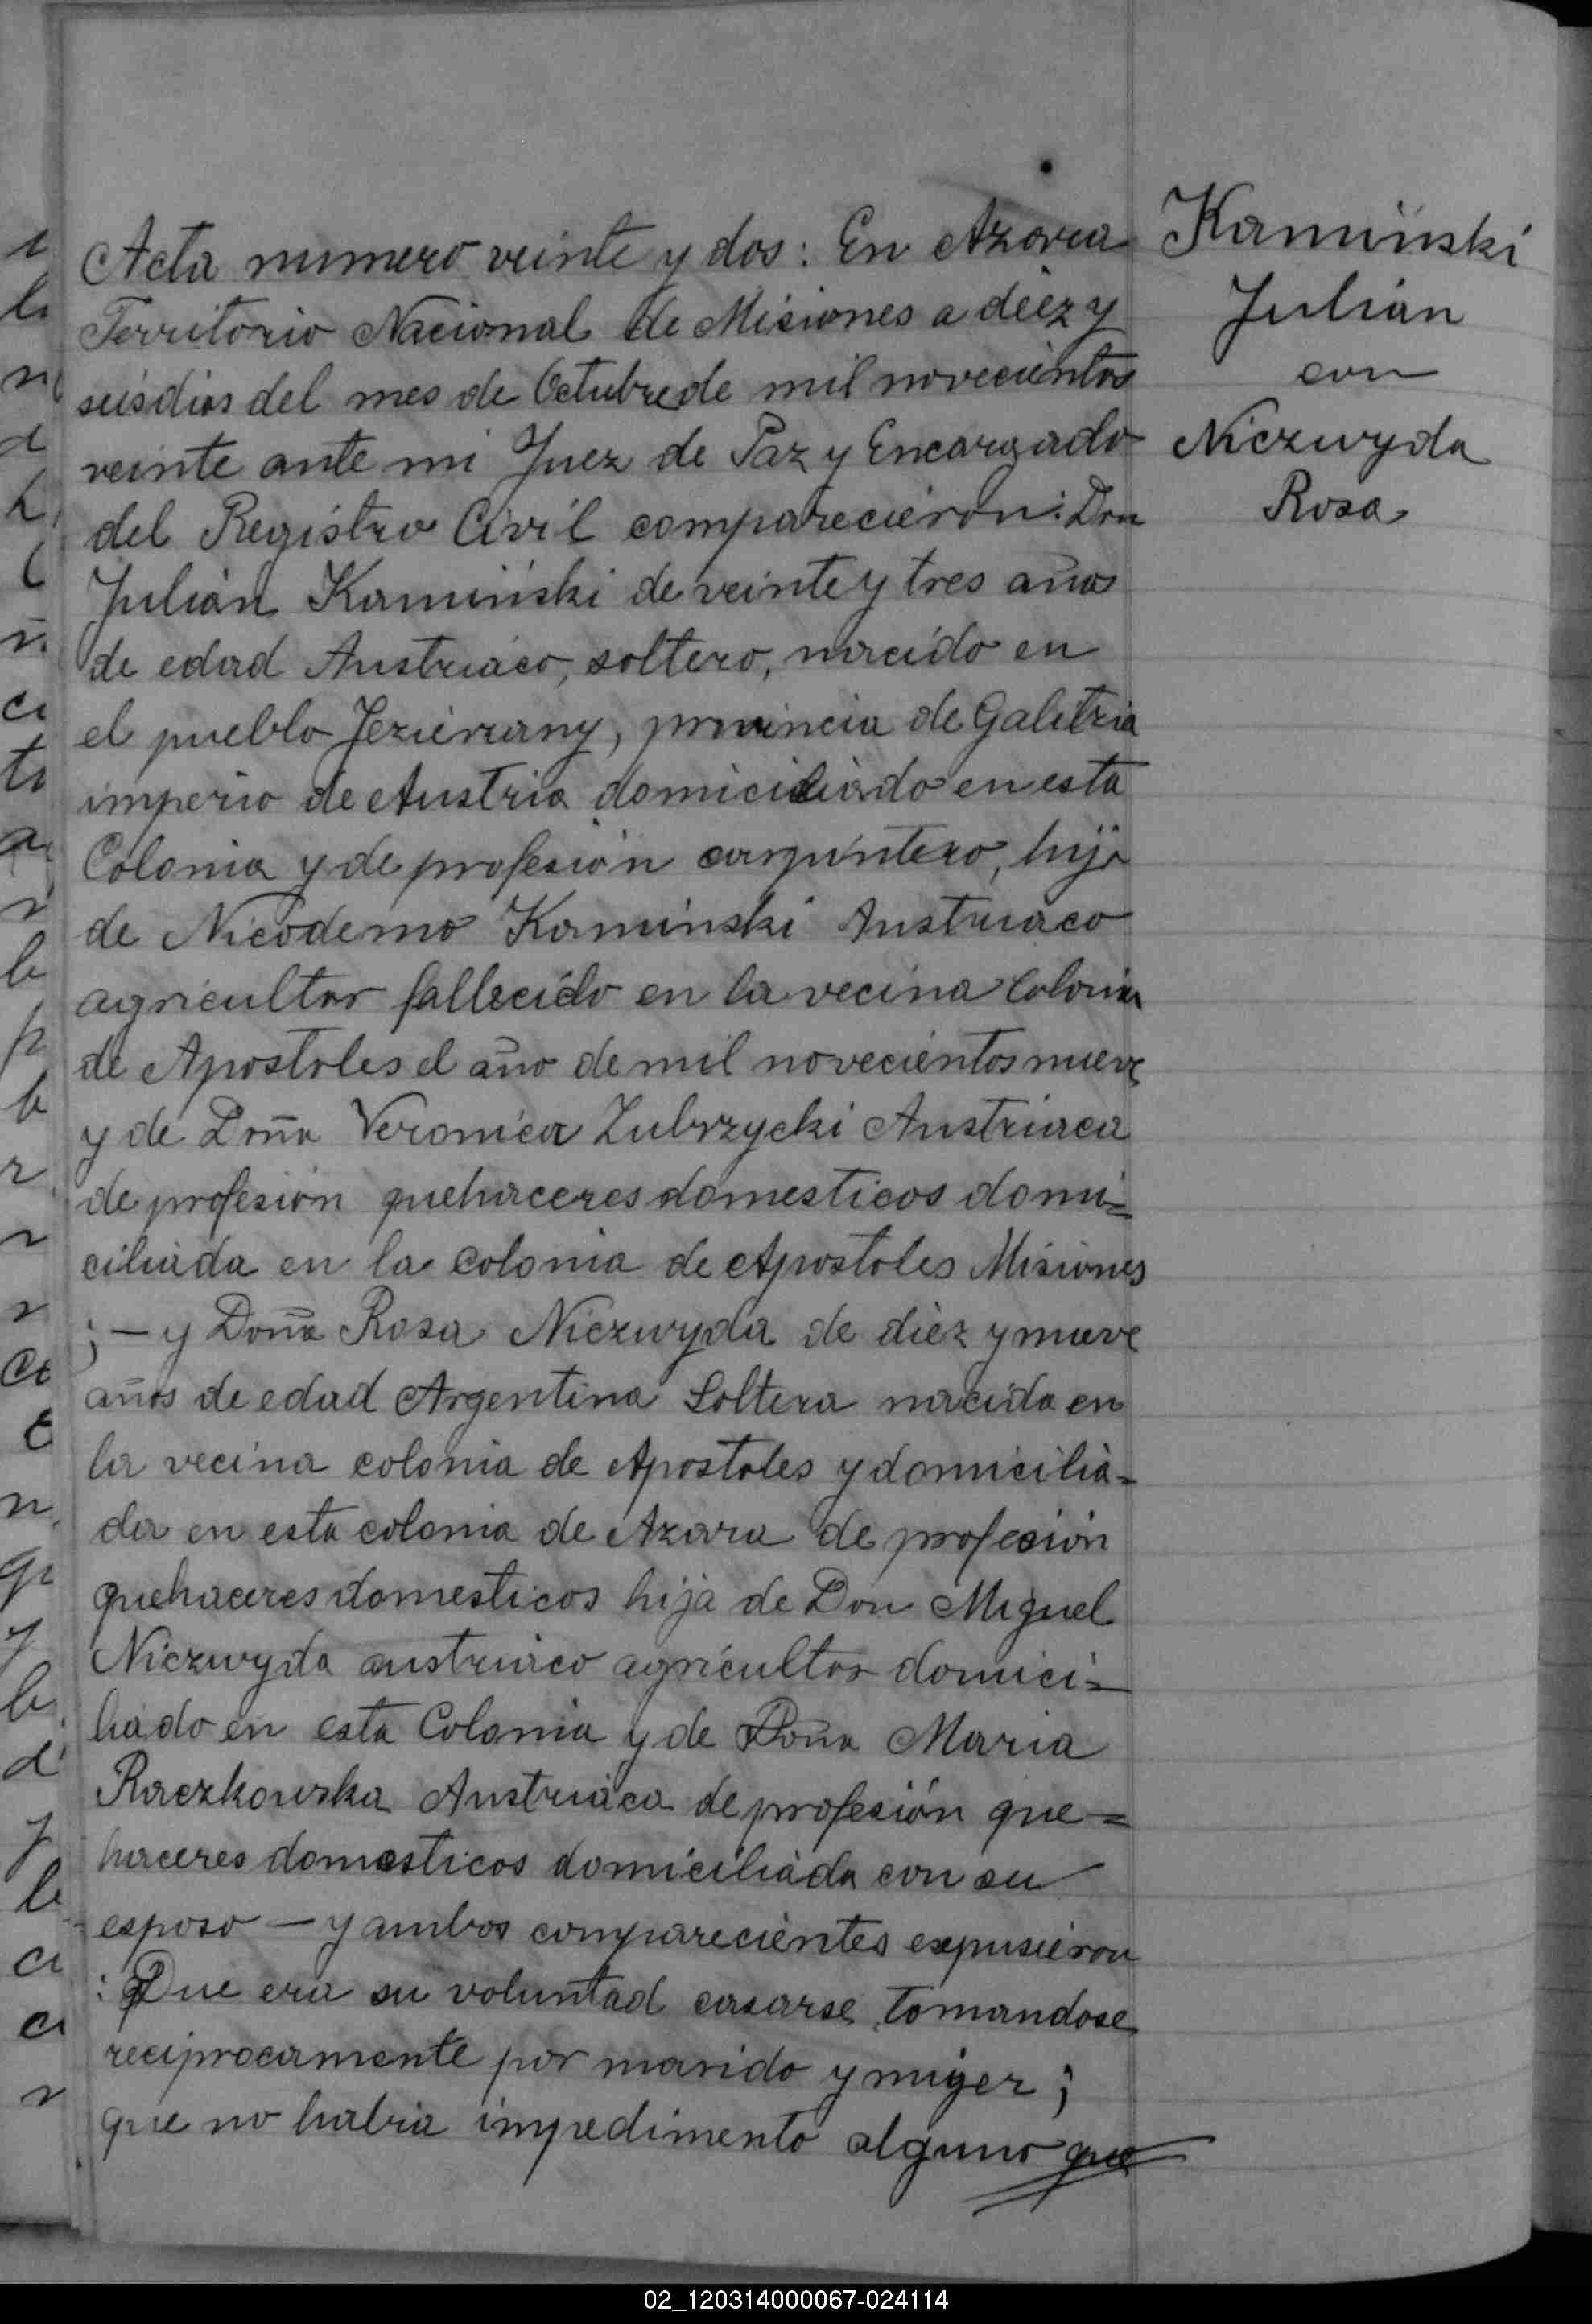 Acta numero veinte y dos: En Azara
Territorio Nacional de Misiones a diez y
seis dias del mes de Octubre de mil novecientos
veinte ante mi Juez de Paz y Encargado
del Registro Civil comparecieron: Don
Julián Kamiński de veinte y tres años
de edad Austriaco, soltero, nacido en
el pueblo Jezierzany, provincia de Galitzia
imperio de Austria domiciliado en esta
Colonia y de profesión carpintero, hijo
de Nicodemo Kaminski Austriaco
agricultor fallecido en la vecina Colonia
de Apostoles el año de mil novecientos nueve
y de Doña Veronica Zubrzycki Austriaca
de profesión quehaceres domesticos domi=
ciliada en la colonia de Apostoles Misiones
;— y Doña Rosa Niezwyda de diez y nueve
años de edad Argentina Soltera nacida en
la vecina colonia de Apostoles y domicilia=
da en esta colonia de Azara de profesión
quehaceres domesticos hija de Don Miguel
Niezwyda austriaco agricultor domici=
liado en esta Colonia y de Doña Maria
Raczkowska Austriaca de profesión que=
haceres domesticos domiciliada con su
esposo — y ambos comparecientes expusieron
: Que era su voluntad casarse tomandose
reciprocamente por marido y muger;
que no habia impedimento alguno que
Kamiński
Julián
con
Niezwyda
Rosa
02_120314000067-024114